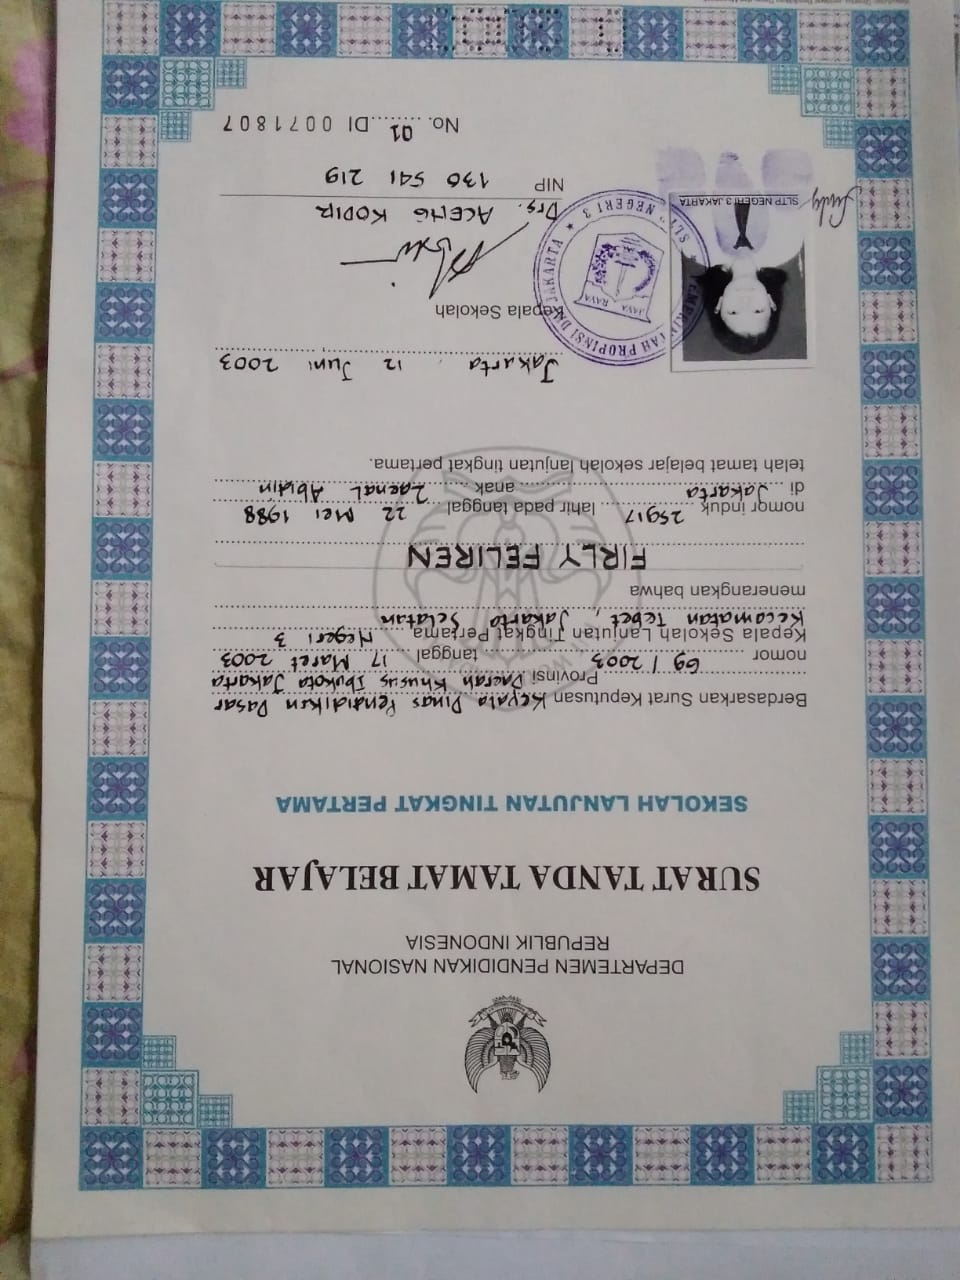 DEPARTEMEN PENDIDIKAN NASIONAL
REPUBLIK INDONESIA
SURAT TANDA TAMAT BELAJAR
SEKOLAH LANJUTAN TINGKAT PERTAMA
Berdasarkan Surat Keputusan Kepala Dinas Pendidikan Dasar
Provinsi Daerah Khusus Ibukota Jakarta
nomor 69 / 2003 tanggal 17 Maret 2003
Kepala Sekolah Lanjutan Tingkat Pertama Negeri 3
Kecamatan Tebet, Jakarta Selatan
menerangkan bahwa
FIRLY FELIREN
nomor induk 25917 lahir pada tanggal 22 Mei 1988
di Jakarta anak Zaenal Abidin
telah tamat belajar sekolah lanjutan tingkat pertama.
Jakarta, 12 Juni 2003
Kepala Sekolah
PEMERINTAH PROPINSI DKI JAKARTA
JAYA RAYA
SLTP NEGERI 3
SLTP NEGERI 3 JAKARTA
Drs. ACENG KODIR
NIP 130 541 219
No. 01 DI 0071807